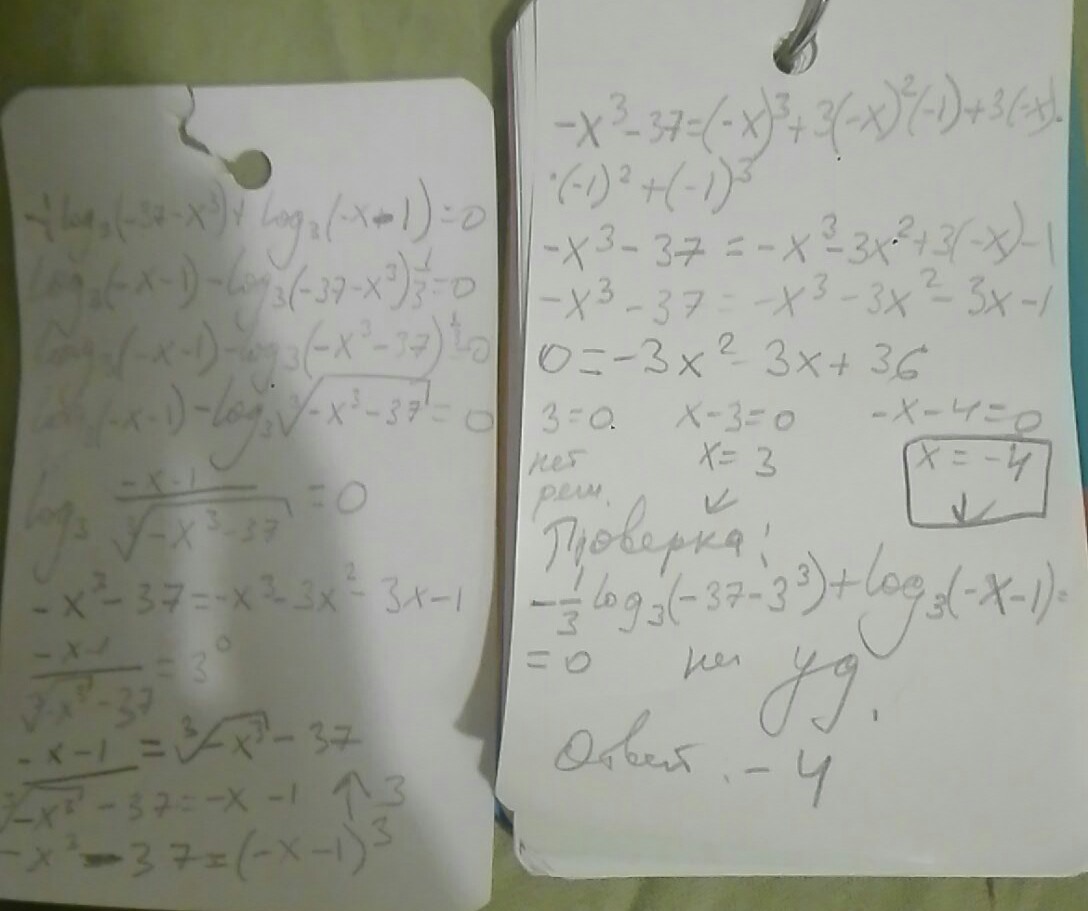 -1/3 log₃(-37-x³)+log₃(-x-1)=0
log₃(-x-1)-log₃(-37-x³)^(1/3)=0
log₃(-x-1)-log₃(-x³-37)^(1/3)=0
log₃(-x-1)-log₃∛(-x³-37)=0
log₃ (-x-1)/∛(-x³-37) =0
-x³-37=-x³-3x²-3x-1
(-x-1)/∛(-x³-37) =3⁰
-x-1=∛(-x³-37)
∛(-x³-37)=-x-1 ↑3
-x³-37=(-x-1)³
-x³-37=(-x)³+3(-x)²(-1)+3(-x)·
·(-1)²+(-1)³
-x³-37=-x³-3x²+3(-x)-1
-x³-37=-x³-3x²-3x-1
0=-3x²-3x+36
3=0 x-3=0 -x-4=0
нет x=3 x=-4
реш. ↙ ↓
Проверка!
-1/3 log₃(-37-3³)+log₃(-x-1)=
=0 не уд.
Ответ. -4